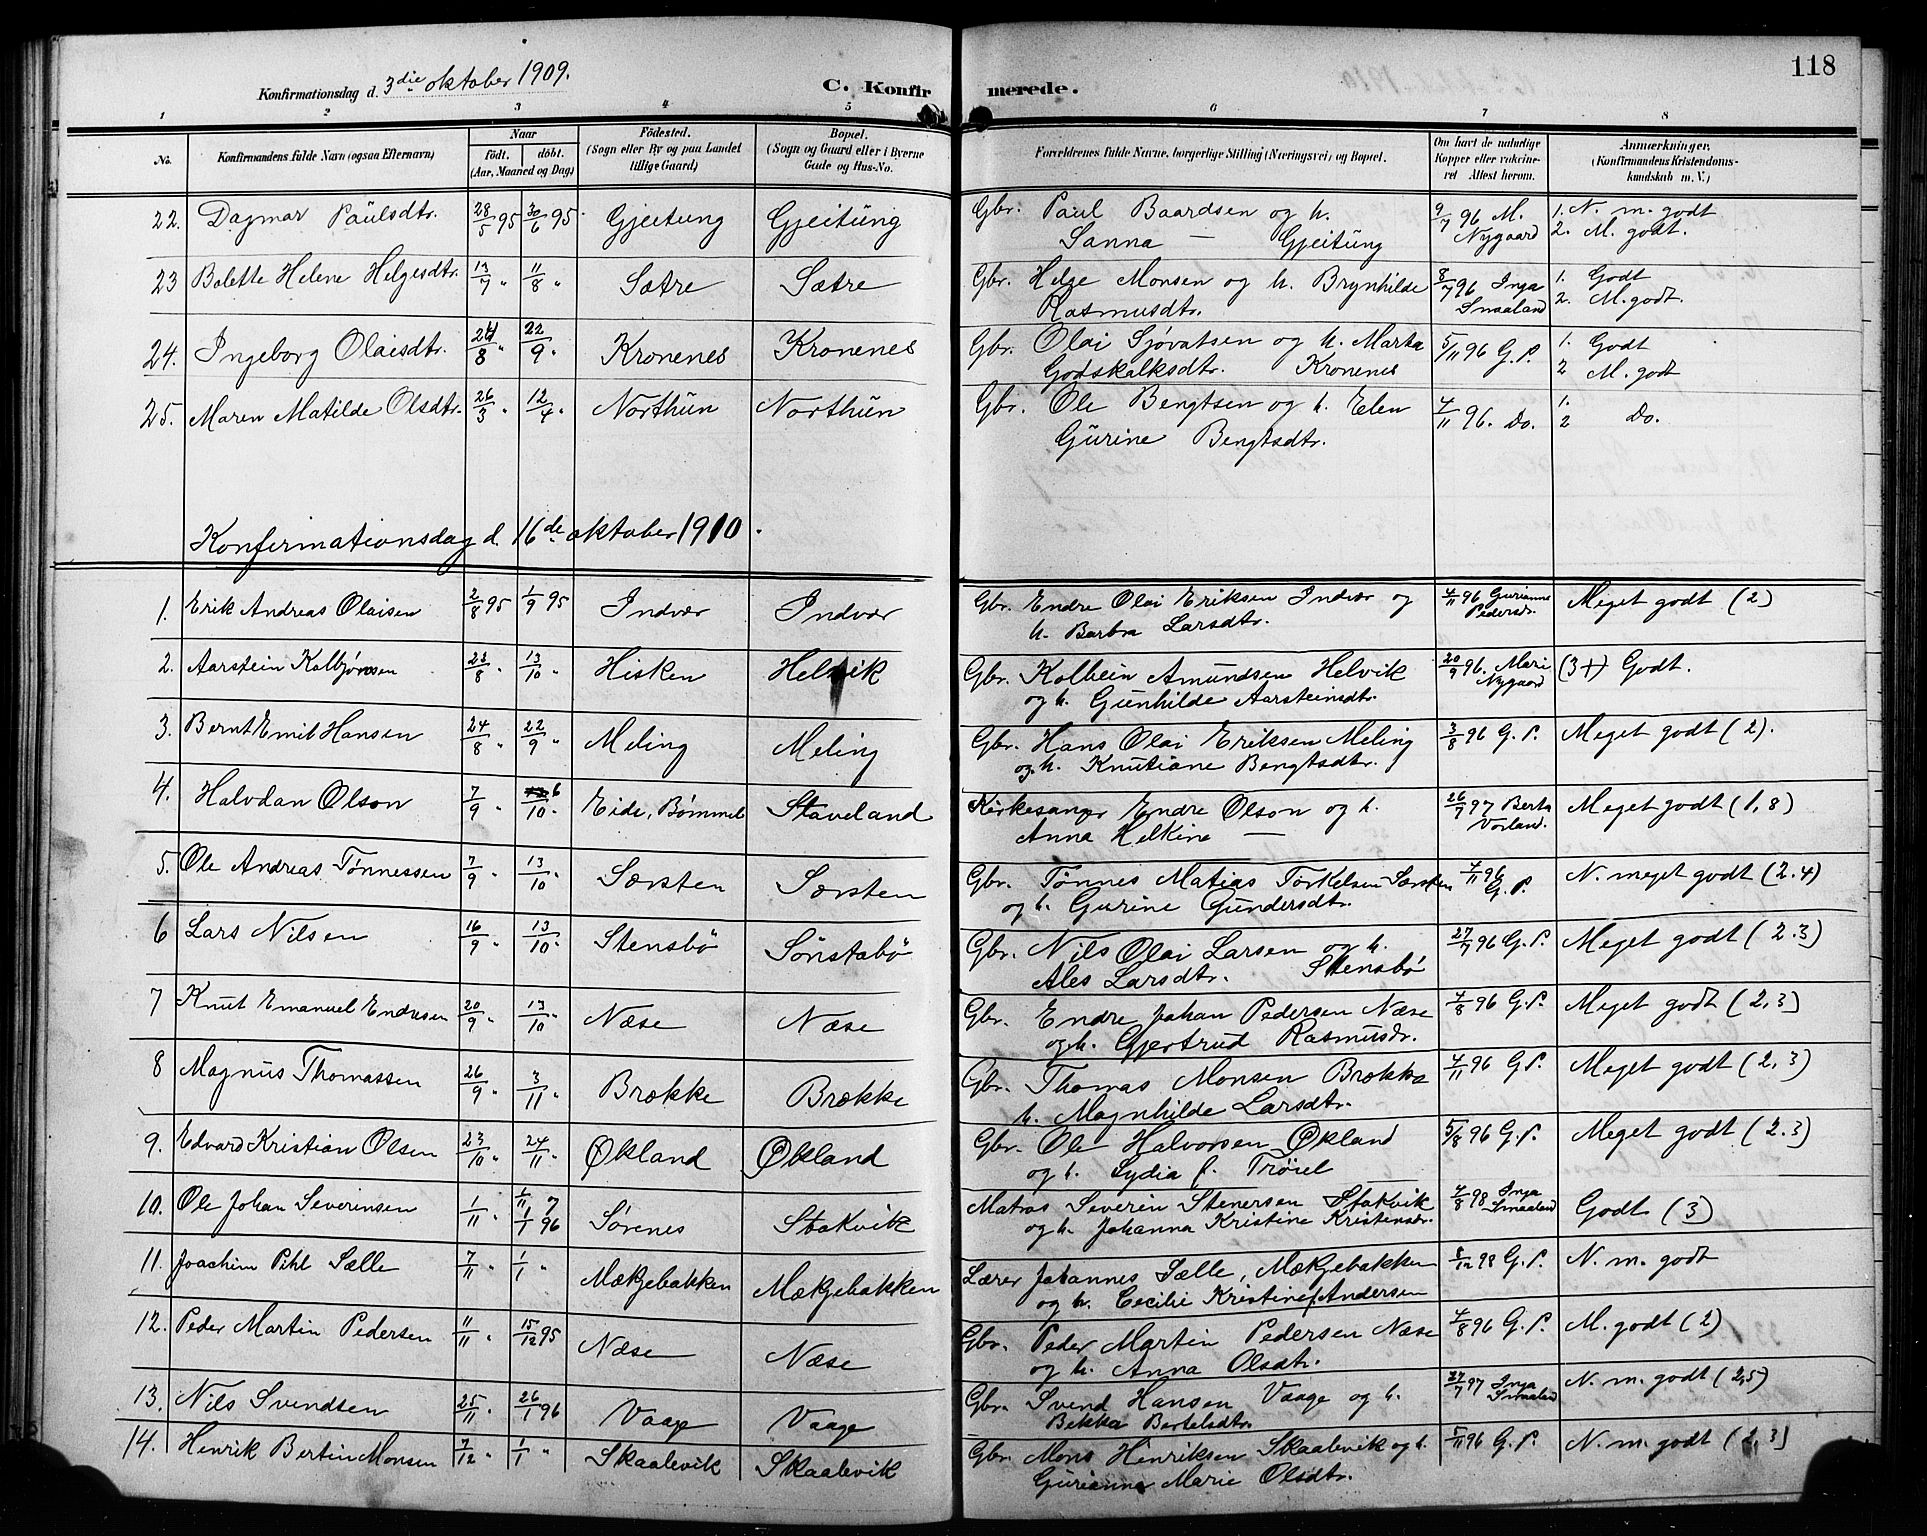 118
Konfirmationsdag d. 3die oktober 1909.
C. Konfirmerede.
1 2 3 4 5 6 7 8
No. Konfirmandens fulde Navn (ogsaa Efternavn) Naar født. døbt. (Aar, Maaned og Dag) Fødested. (Sogn eller By og paa Landet tillige Gaard) Bopæl. (Sogn og Gaard eller i Byerne Gade og Hus-No. Forældrenes fulde Navne, borgerlige Stilling (Næringsvei) og Bopæl. Om havt de naturlige Kopper eller vaccineret Attest herom. Anmærkninger. (Konfirmandens Kristendomskundskab m. V.)
22. Dagmar Paulsdtr. 28/5 95 30/6 95. Gjeitung Gjeitung Gbr. Paul Baardsen og h. 9/7 96 M. 1. N. m. godt
Sanna — Gjeitung Nygaard 2. M. godt.
23 Bolette Helene Helgesdtr. 13/7 " 11/8 " Sætre Sætre Gbr. Helge Monsen og h. Brynhilde 8/7 96 Inga 1. Godt
Rasmusdtr. Smaaland 2. M. godt.
24. Ingeborg Olaisdtr. /8 " 22/9 " Kronenes Kronenes Gbr. Olai Sjøvatsen og h. Marta 5/11 96 G. P. 1. Godt
Godskalksdtr. Kronenes 2 M. godt
25. Maren Matilde Olsdtr. 26/3 " 12/4 " Northun Northun Gbr. Ole Bengtsen og h. Elen 4/11 96. Do. 1.
Gurine Bengtsdtr. 2 Do.
Konfirmationsdag d. 16de oktober 1910.
1. Erik Andreas Olaisen 2/8 95 1/9 95 Indvær Indvær Gbr. Endre Olai Eriksen Indvær og 4/11 96 Gurianne Meget godt (2)
h. Barbra Larsdtr. Pedersdr.
2. Aarstein Kolbjønsen /8 " 13/10 " Hisken Helvik Gbr. Kolbein Amundsen Helvik 20/9 96. Mari (3+) Godt.
og h. Gunhilde Aarsteinsdtr. Nygaard
3. Bernt Emil Hansen 24/8 " 22/9 " Meling Meling Gbr. Hans Olai Eriksen Meling 3/8 96 G. P. Meget godt (2).
og h. Knutiane Bengtsdtr.
4. Halvdan Olson 7/9 " 6/10 " Eide, Bømmel Staveland Kirkesanger Endre Olson og h. 26/7 97 Berta Meget godt (1,8)
Anna Helkine — Vorland.
5. Ole Andreas Tønnessen 7/9 " 13/10 " Særsten Særsten Gbr. Tønnes Matias Torkelsen Særsten 4/11 96 N. meget godt (2.4)
og h. Gurine Gundersdtr. G. P.
6 Lars Nilsen 16/9 " 13/10 " Stensbø Sønstabø Gbr. Nils Olai Larsen og h. 27/7 96 G. P. Meget godt (2.3)
Ales Larsdtr. Stensbø
7 Knut Emanuel Endresen 20/9 " 13/10 " Næse Næse Gbr. Endre Johan Pedersen Næse 4/8 96 G. P. Meget godt (2,3)
og h. Gjertrud Rasmusdr.
8 Magnus Thomassen 26/9 " 3/11 " Brække Brække Gbr. Thomas Monsen Brække 4/11 96 G. P. Meget godt (2,3)
h. Magnhilde Larsdtr.
9. Edvard Kristian Olsen 23/10 " 24/11 " Økland Økland Gbr. Ole Halvorsen Økland 5/8 96 G. P. Meget godt (2.3)
og h. Lydia f. Trøiel
10. Ole Johan Severinsen 1/11 " 1/1 96 Sørenes Stokvik Matros Severin Stenersen Stokvik 4/8 98 Inga Smaaland Godt (3)
og h. Johanna Kristine Kristensdr.
11. Joachim Pihl Sælle 7/11 " 1/1 " Mækjebakken Mækjebakken Lærer Johannes Sælle, Mækjebakken 8/12 98 G. P. N. m. godt
og h. Cecilie Kristine f. Andersen
12. Peder Martin Pedersen 11/11 " 15/12 95 Næse Næse Gbr. Peder Martin Pedersen Næse 4/8 96 G. P. M. godt (2)
og h. Anna Olsdtr.
13. Nils Svendsen 25/11 " 26/1 96 Vaage Vaage Gbr. Svend Hansen Vaage og h. 27/7 97 Inga Smaaland N. m. godt (2,5)
Bekka Bertelsdtr.
14. Henrik Bertin Monsen 7/12 " 1/1 " Skaalevik Skaalevik Gbr. Mons Henriksen Skaalevik og h. 5/11 96 G. P. N. m. godt (2,3)
Gurianna Marie Olsdtr.